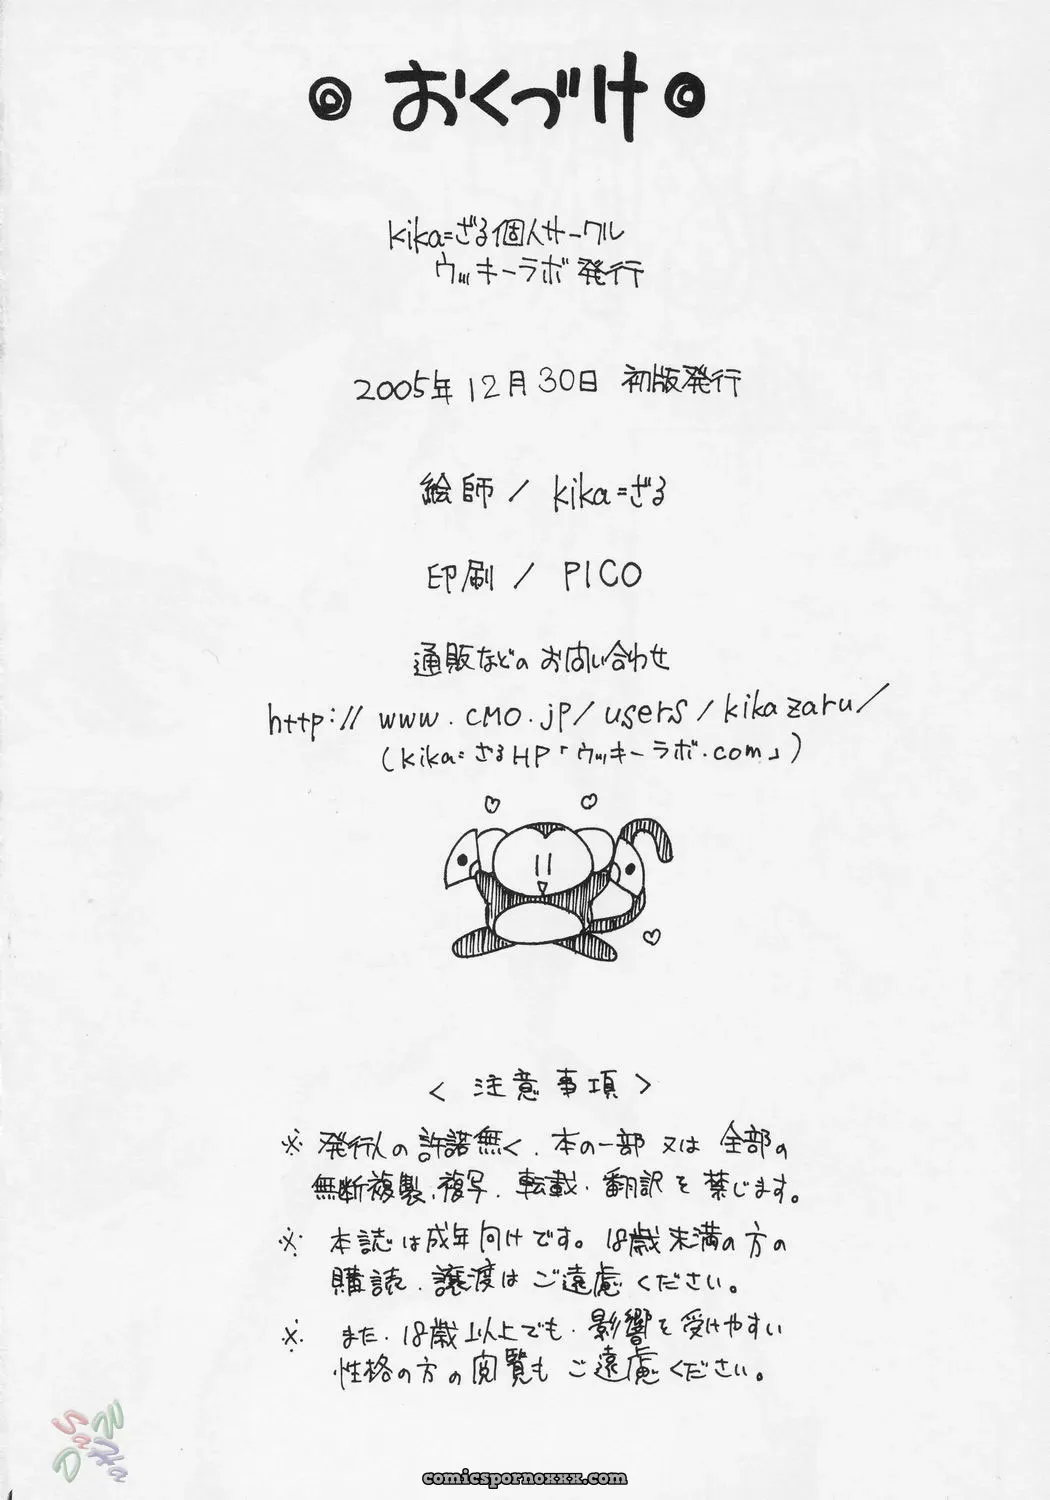 ◎ おくづけ ◎
kika=ざる個人サークル
ウッキーラボ発行
2005年12月30日 初版発行
絵師 / kika=ざる
印刷 / PICO
通販などのお問い合わせ
http://www.cmo.jp/users/kikazaru/
(kika=ざるHP「ウッキーラボ.com」)
< 注意事項 >
※ 発行人の許諾無く、本の一部又は全部の
無断複製、複写、転載、翻訳を禁じます。
※ 本誌は成年向けです。18歳未満の方の
購読、譲渡はご遠慮ください。
※ また、18歳以上でも、影響を受けやすい
性格の方の閲覧もご遠慮ください。
comicspornoxxx.com